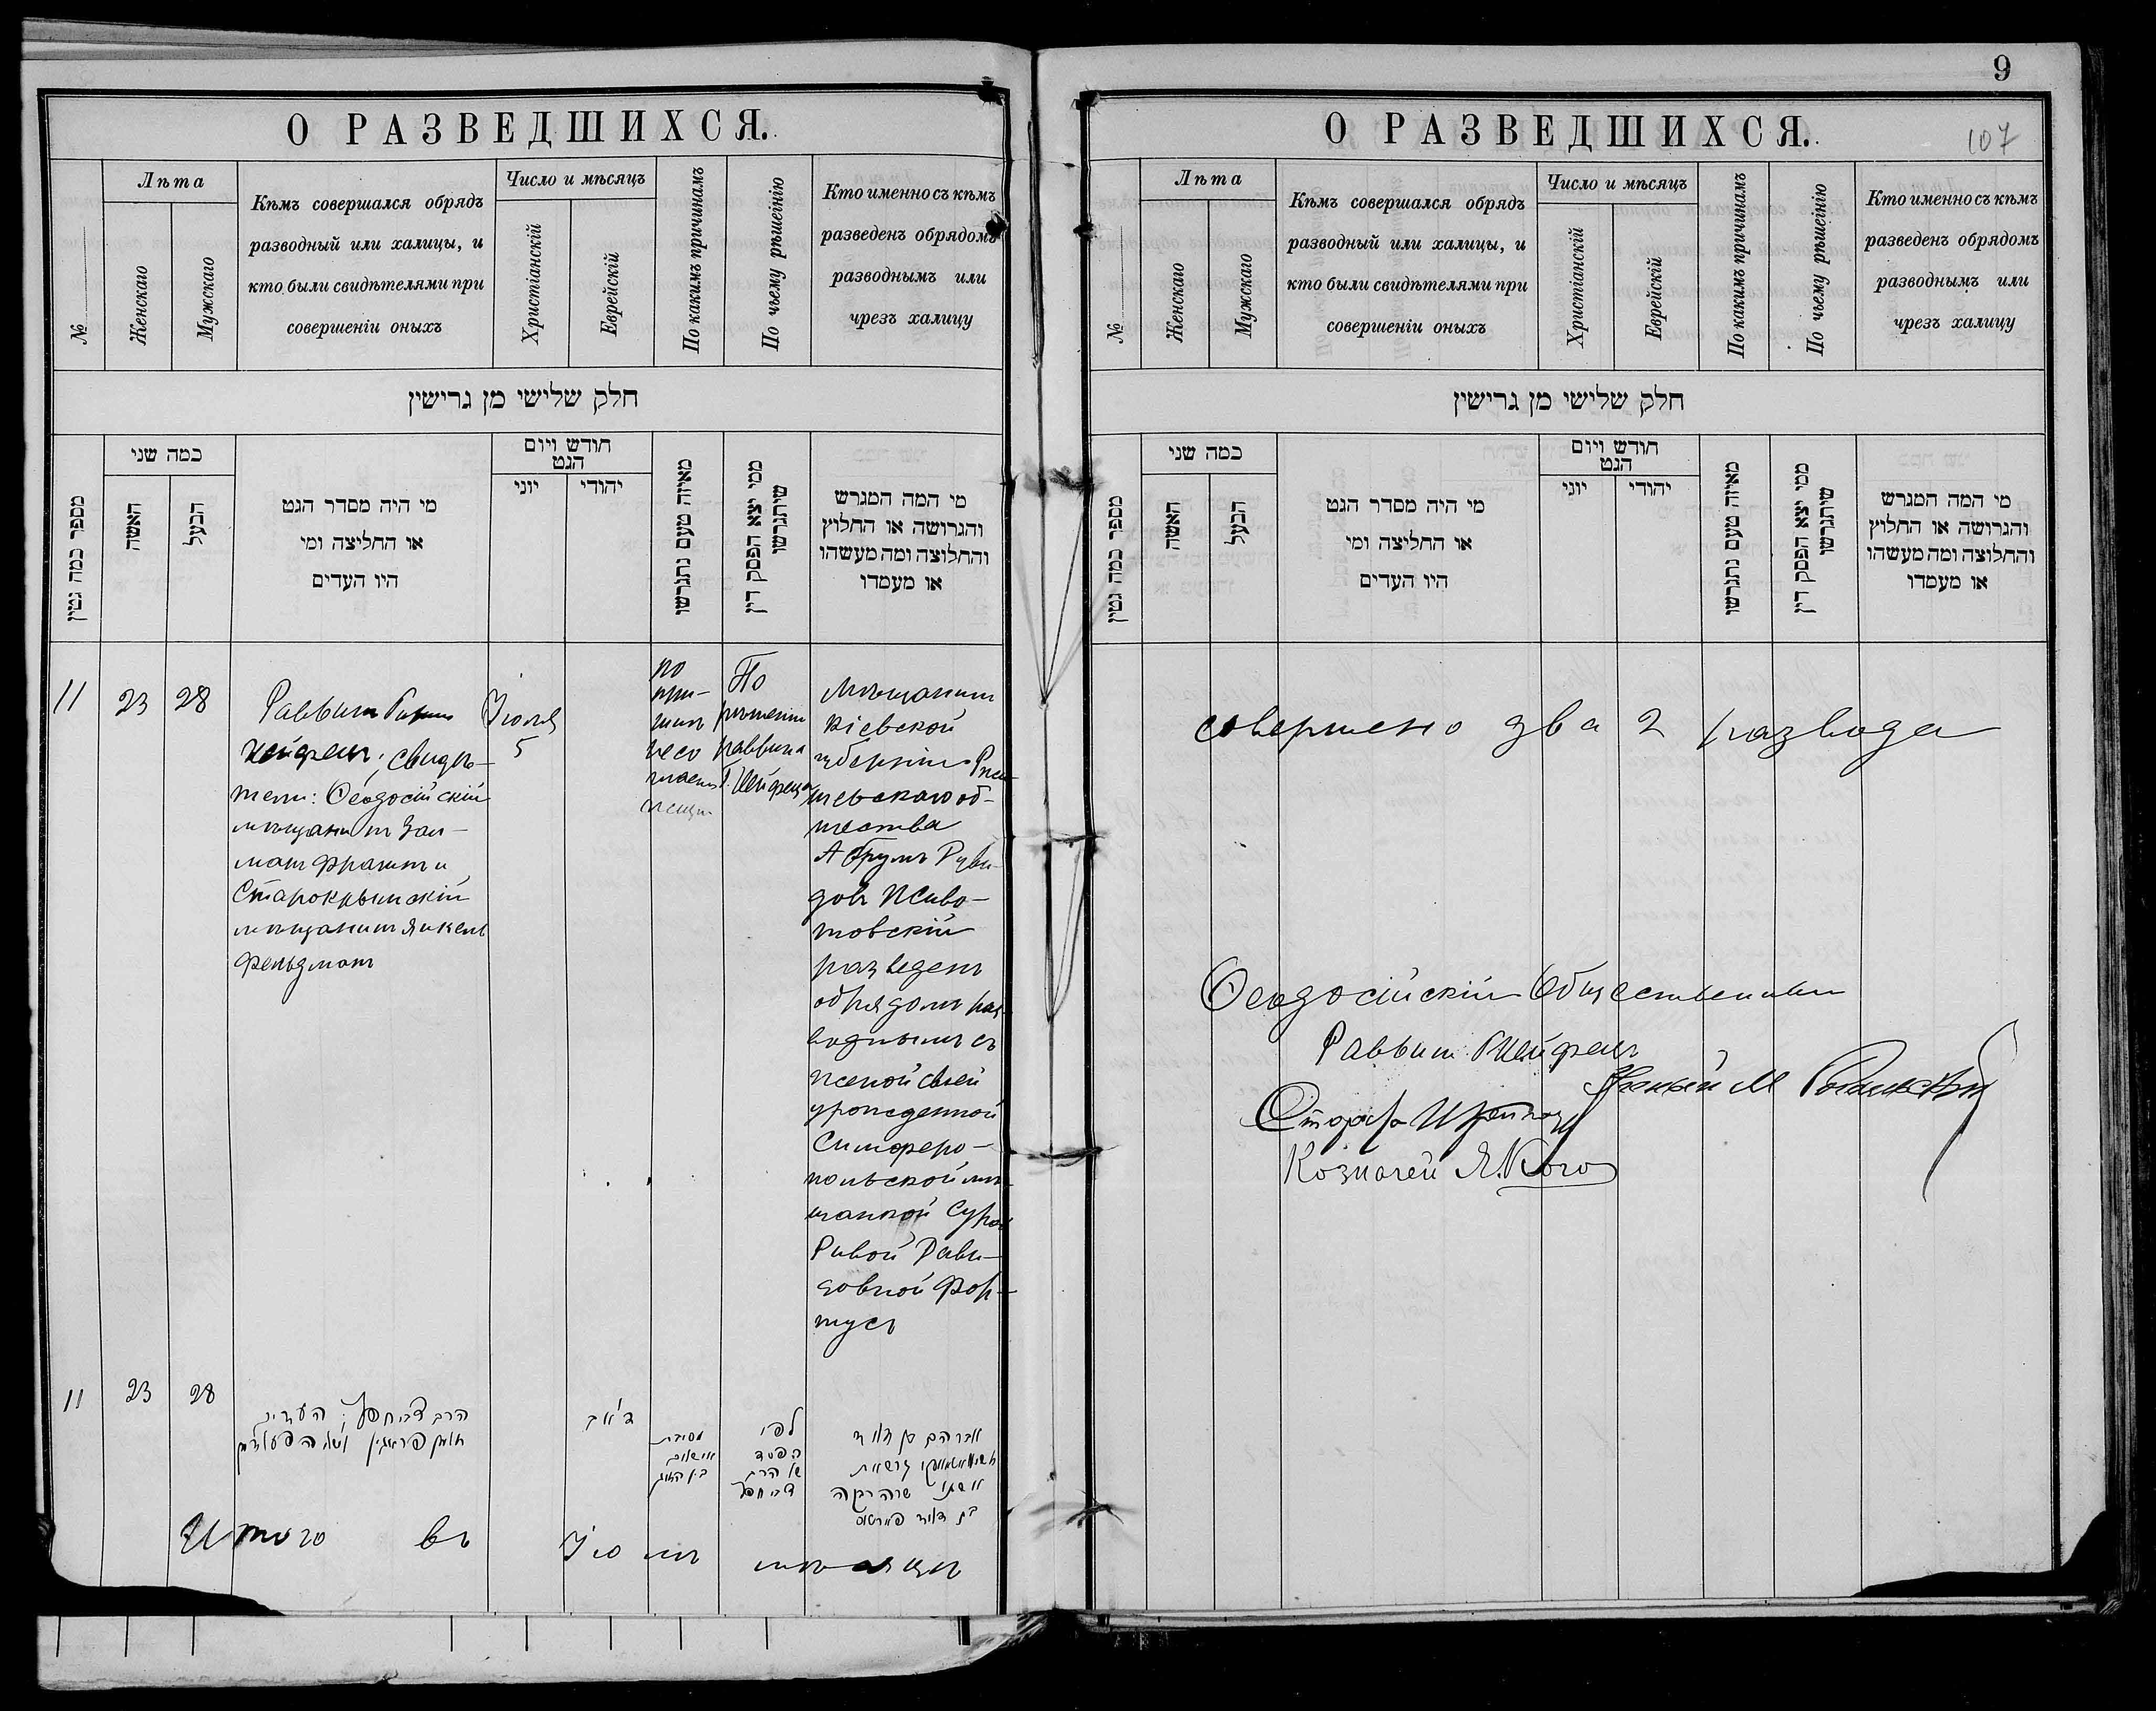 О РАЗВЕДШИХСЯ.
№
Лѣта
Женскаго
Мужскаго
Кѣмъ совершался обрядъ
разводный или халицы, и
кто были свидѣтелями при
совершеніи оныхъ
Число и мѣсяцъ
Христіанскій
Еврейскій
По какимъ причинамъ
По чьему рѣшеінію
Кто именно съ кѣмъ
разведенъ обрядомъ
разводнымъ или
чрезъ халицу
חלק שלישי מן גרישין
מספר כמה גטין
כמה שני
האשה
הבעל
מי היה מסדר הגט
או החליצה ומי
היו העדים
חודש ויום
הגט
יוני
יהודי
מאיזה טעם נתגרשו
ממי יצא הפסק דין
שיתגרשו
מי המה המגרש
והגרושה או החלוץ
והחלוצה ומה מעשהו
או מעמדו
11
23
28
Раввинъ
свидѣ-
тели: Ѳеодосійскій
мѣщанинъ Зал-
манъ и
Старокрымскій
мѣщанинъ Янкель
Фельдманъ
Іюля
5
по
при-
чинѣ
несо
гласія
По
рѣшенію
раввина
мѣщанинъ
Кіевской
губерніи
об-
щества
Абрумъ
товскій
разведенъ
обрядомъ раз-
воднымъ съ
женой своей
урожденной
Симферо-
польской мѣ-
щанкой Сурой
Ривой Дави-
довной Фор-
тусъ
11
23
28
לפי
של הרב
אברהם בן דוד
אשתו שרה רבקה
בת דוד
Итого въ Іюлѣ мѣсяцѣ
9
107
О РАЗВЕДШИХСЯ.
№
Лѣта
Женскаго
Мужскаго
Кѣмъ совершался обрядъ
разводный или халицы, и
кто были свидѣтелями при
совершеніи оныхъ
Число и мѣсяцъ
Христіанскій
Еврейскій
По какимъ причинамъ
По чьему рѣшеінію
Кто именно съ кѣмъ
разведенъ обрядомъ
разводнымъ или
чрезъ халицу
חלק שלישי מן גרישין
מספר כמה גטין
כמה שני
האשה
הבעל
מי היה מסדר הגט
או החליצה ומי
היו העדים
חודש ויום
הגט
יוני
יהודי
מאיזה טעם נתגרשו
ממי יצא הפסק דין
שיתגרשו
מי המה המגרש
והגרושה או החלוץ
והחלוצה ומה מעשהו
או מעמדו
совершено два 2 развода
Ѳеодосійскій Общественный
Раввинъ
Ученый М
Староста
Козначей Я.